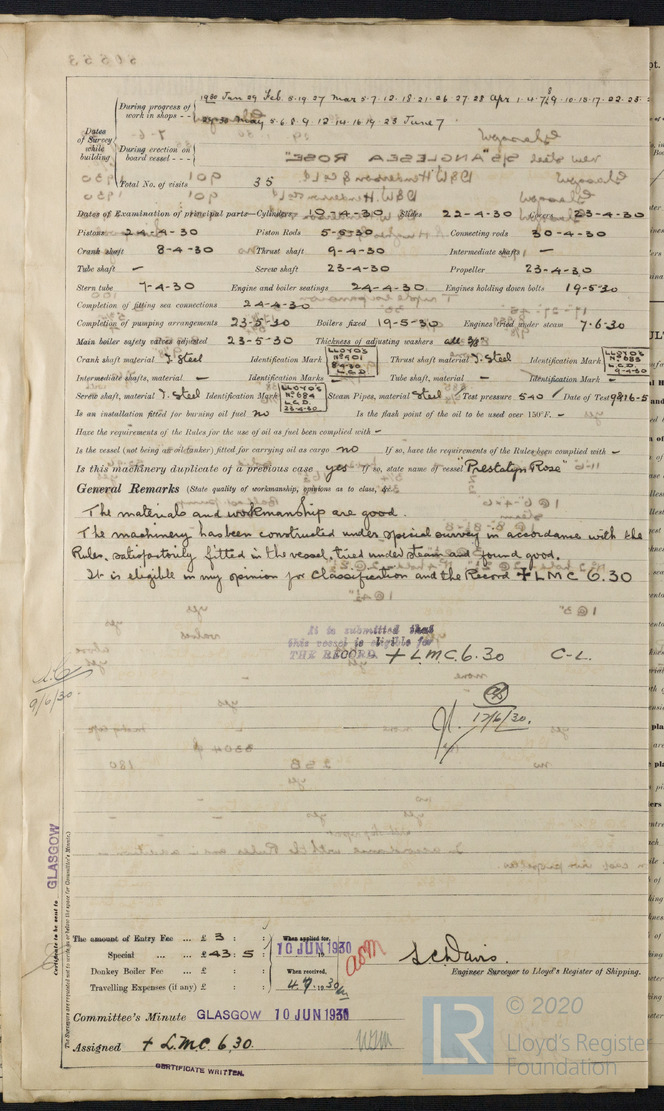 50553
During progress of work in shops - - 1930 Jan 29 Feb. 5.19.27 Mar 5.7.12.18.21.26.27.28 Apr 1.4.7.8.9.10.15.17.22.23.
Dates of Survey while building
May 5.6.8.9.12.14.16.19.23 June 7.
During erection on board vessel - - -
Total No. of visits 35
Dates of Examination of principal parts—Cylinders 10-4-30 Slides 22-4-30 Covers 23-4-30
Pistons 24-4-30 Piston Rods 5-5-30 Connecting rods 30-4-30
Crank shaft 8-4-30 Thrust shaft 9-4-30 Intermediate shafts —
Tube shaft — Screw shaft 23-4-30 Propeller 23-4-30
Stern tube 7-4-30 Engine and boiler seatings 24-4-30 Engines holding down bolts 19-5-30
Completion of fitting sea connections 24-4-30
Completion of pumping arrangements 23-5-30 Boilers fixed 19-5-30 Engines tried under steam 7-6-30
Main boiler safety valves adjusted 23-5-30 Thickness of adjusting washers all 3/8"
Crank shaft material I. Steel Identification Mark LLOYD'S No 901 8-4-30 L.C.D. Thrust shaft material I. Steel Identification Mark LLOYD'S No 683 L.C.D. 9-4-30
Intermediate shafts, material — Identification Marks — Tube shaft, material — Identification Mark —
Screw shaft, material I. Steel Identification Mark LLOYD'S No 684 L.C.D. 23-4-30 Steam Pipes, material Steel Test pressure 540 Date of Test 9&16-5
Is an installation fitted for burning oil fuel no Is the flash point of the oil to be used over 150°F. —
Have the requirements of the Rules for the use of oil as fuel been complied with —
Is the vessel (not being an oil tanker) fitted for carrying oil as cargo no If so, have the requirements of the Rules been complied with —
Is this machinery duplicate of a previous case yes If so, state name of vessel "Prestatyn Rose"
General Remarks (State quality of workmanship, opinions as to class, &c.
The materials and workmanship are good.
The machinery has been constructed under special survey in accordance with the
Rules, satisfactorily fitted in the vessel, tried under steam and found good.
It is eligible in my opinion for Classification and the Record + LMC 6.30
It is submitted that
this vessel is eligible for
THE RECORD. + L.M.C. 6.30 C-L.
9/6/30.
12/6/30.
Certificate to be sent to GLASGOW
The Surveyors are requested not to write on or below the space for Committee's Minute.
The amount of Entry Fee ... £ 3 : : When applied for,
Special ... ... £ 43 : 5 : 10 JUN 1930
Donkey Boiler Fee ... £ : : When received,
Travelling Expenses (if any) £ : : 4.7.1930
S. C. Davis.
Engineer Surveyor to Lloyd's Register of Shipping.
Committee's Minute GLASGOW 10 JUN 1930
Assigned + L.M.C. 6,30.
CERTIFICATE WRITTEN.
LR © 2020
Lloyd's Register
Foundation